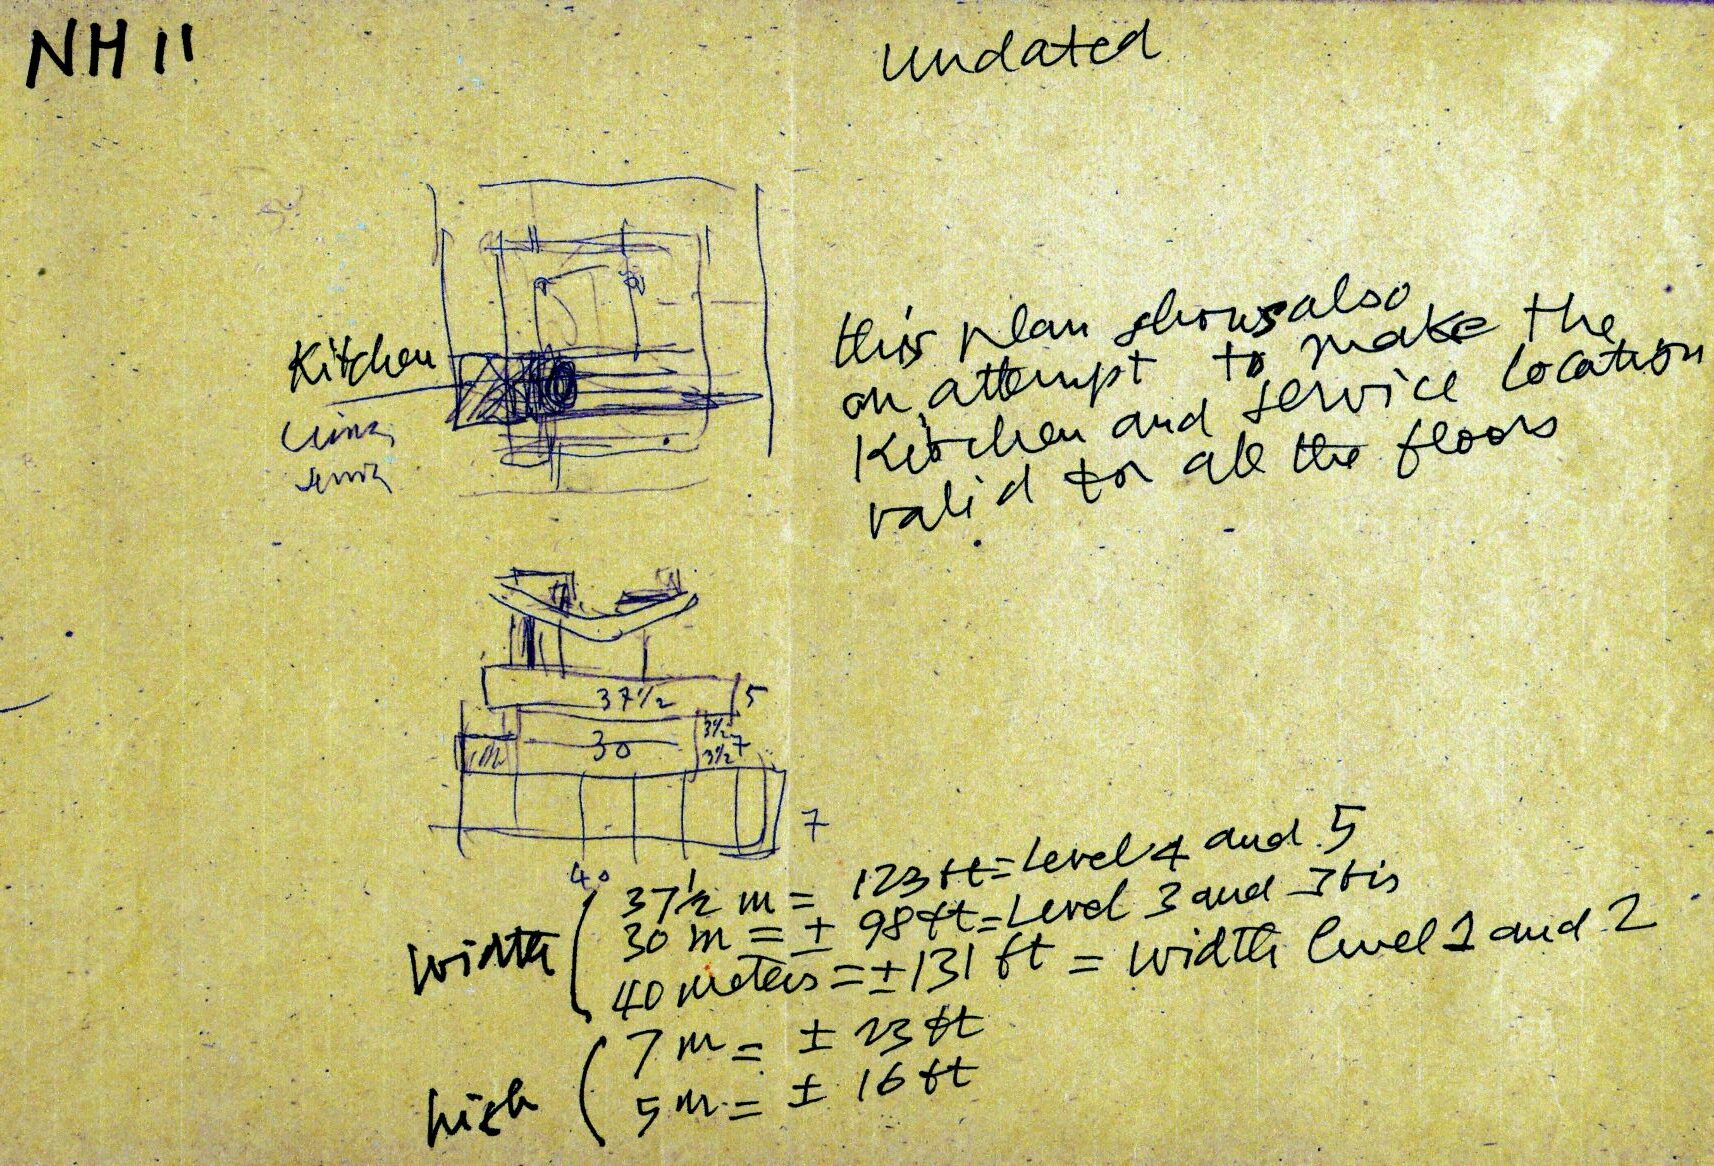 NH 11
undated
this plan shows also
an attempt to make the
Kitchen and service location
valid for all the floors
Kitchen
37½
5
30
3½
7
3½
7
40
width
37½ m = 123 ft = Level 4 and 5
30 m = ± 98 ft = Level 3 and 3bis
40 meters = ± 131 ft = width level 1 and 2
high
7 m = ± 23 ft
5 m = ± 16 ft